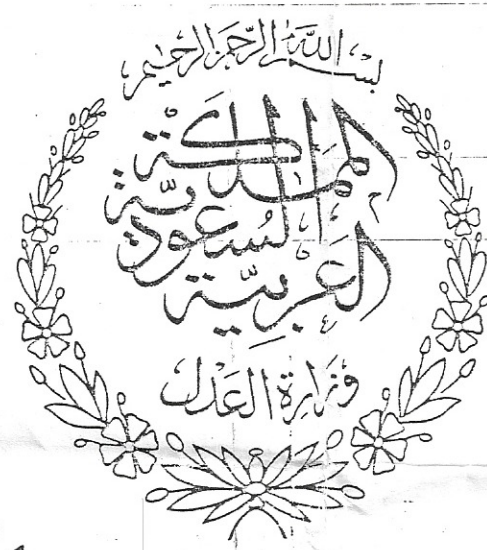 بسم الله الرحمن الرحيم
المملكة
العربية
السعودية
وزارة العدل